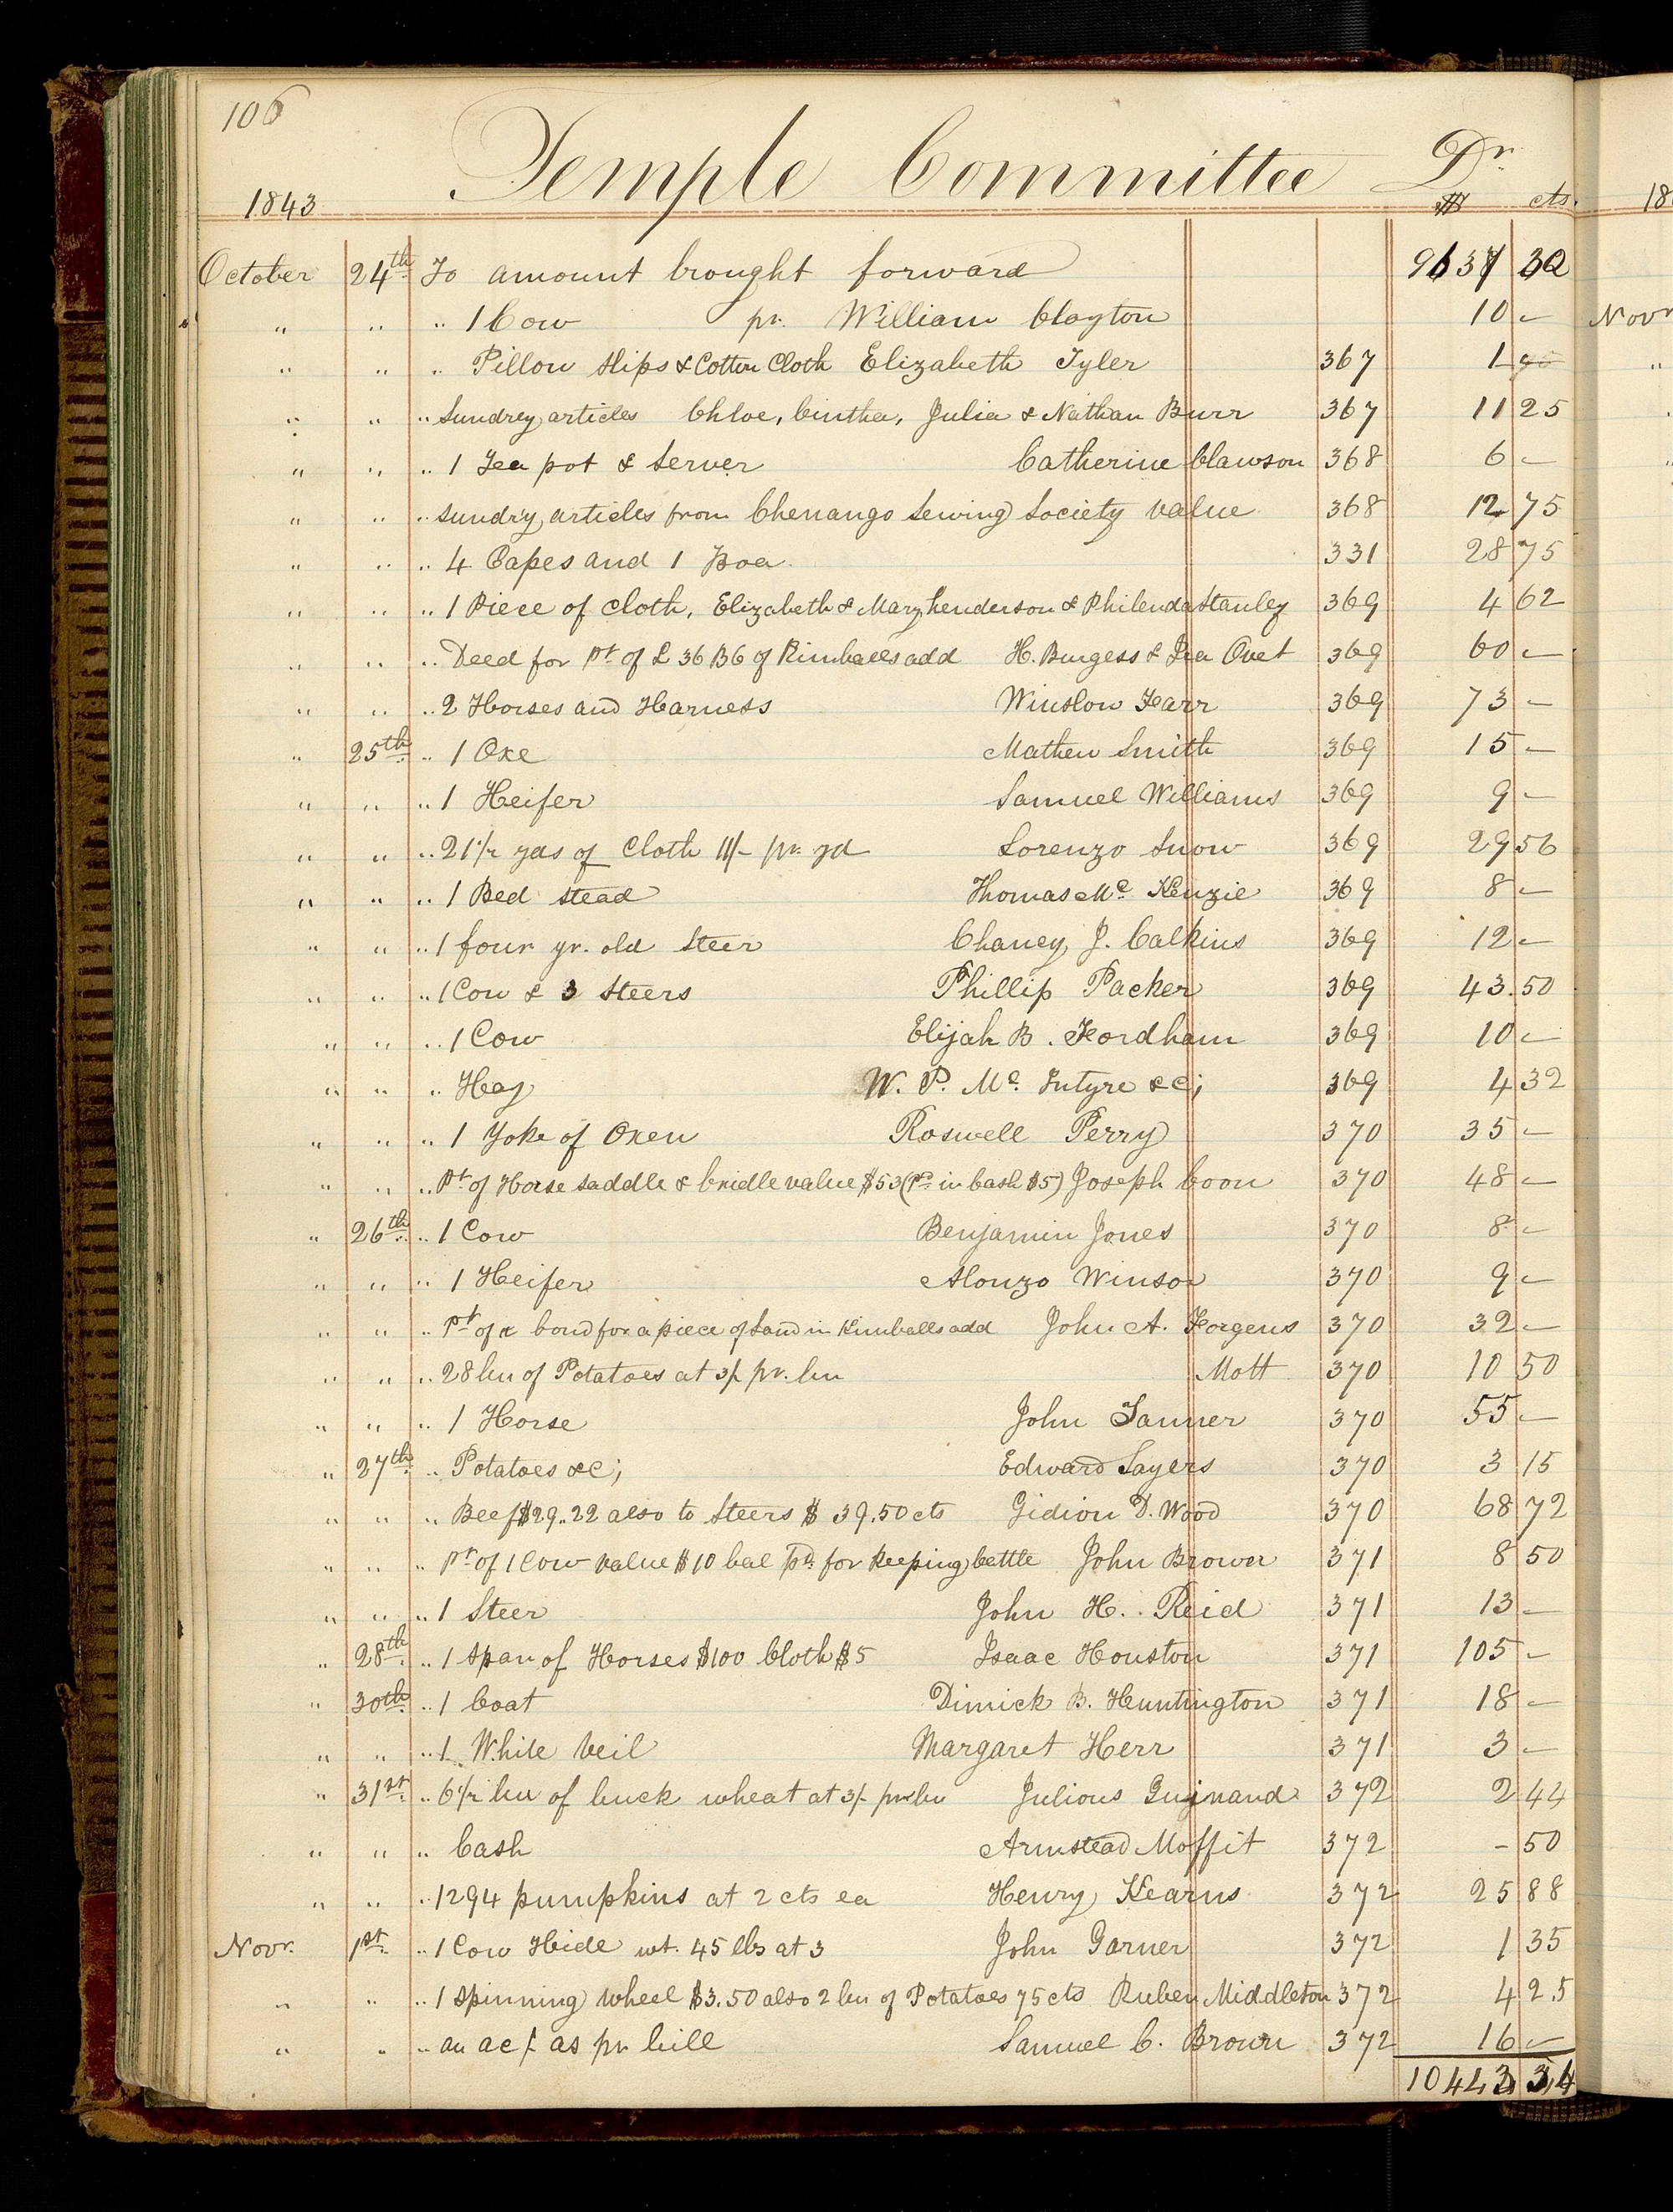 106
Temple Committee Dr
1843 $ cts.
October 24th To amount brought forward 9637 32
" " " 1 Cow pr. William Clayton 10 –
" " " Pillow slips & Cotton Cloth Elizabeth Tyler 367 1
" " " Sundrey articles Chloe, Cinthea, Julia & Nathan Burr 367 11 25
" " " 1 Tea pot & Server Catherine Clawson 368 6 –
" " " sundry articles from Chenango Sewing Society value 368 12 75
" " " 4 Capes and 1 Boa 331 28 75
" " " 1 Piece of cloth, Elizabeth & Mary henderson & Philenda Stanley 369 4 62
" " " Deed for Pt of L 36 B6 of Kimballs add H. Burgess & 369 60 –
" " " 2 Horses and Harness Winslow Farr 369 73 –
" 25th " 1 Oxe Mathew Smith 369 15 –
" " " 1 Heifer Samuel Williams 369 9 –
" " " 21 1/2 yds of Cloth 11/- pr. yd Lorenzo Snow 369 29 56
" " " 1 Bed stead Thomas Mc Kenzie 369 8 –
" " " 1 four yr. old Steer Chaney J. Calkins 369 12 –
" " " 1 Cow & 3 Steers Phillip Packer 369 43.50
" " " 1 Cow Elijah B. Fordham 369 10 –
" " " Hay W. P. Mc. Intyre &c; 369 4 32
" " " 1 Yoke of Oxen Roswell Perry 370 35 –
" " " Pt of Horse Saddle & bridle value $53 (Pd in Cash $5) Joseph Coon 370 48 –
" 26th " 1 Cow Benjamin Jones 370 8 –
" " " 1 Heifer Alonzo Winsor 370 9 –
" " " Pt of a bond for a piece of Land in Kimballs add John A. Forgeus 370 32 –
" " " 28 bu of Potatoes at 3/- pr. bu Mott 370 10 50
" " " 1 Horse John Tanner 370 55 –
" 27th " Potatoes &c; Edward Sayers 370 3 15
" " " Beef $29..22 also to Steers $ 39.50 cts Gidion D. Wood 370 68 72
" " " Pt of 1 Cow value $10 bal pd. for keeping Cattle John Brown 371 8 50
" " " 1 Steer John H. Reid 371 13 –
" 28th " 1 span of Horses $100 Cloth $5 Isaac Houston 371 105 –
" 30th " 1 Coat Dimick B. Huntington 371 18 –
" " " 1 White Veil Margaret Herr 371 3 –
" 31st " 6 1/2 bu of buck wheat at 3/- pr bu Julious Guinand 372 2 44
" " " Cash Armstead Moffit 372 – 50
" " " 1294 pumpkins at 2 cts ea Henry Kearns 372 25 88
Novr. 1st " 1 Cow Hide wt. 45 lbs at 3 John Garner 372 1 35
" " " 1 spinning wheel $3.50 also 2 bu of Potatoes 75 cts Ruben Middleton 372 4 25
" " " an ac/- as pr bill Samuel C. Brown 372 16 –
10443 34
18
Novr